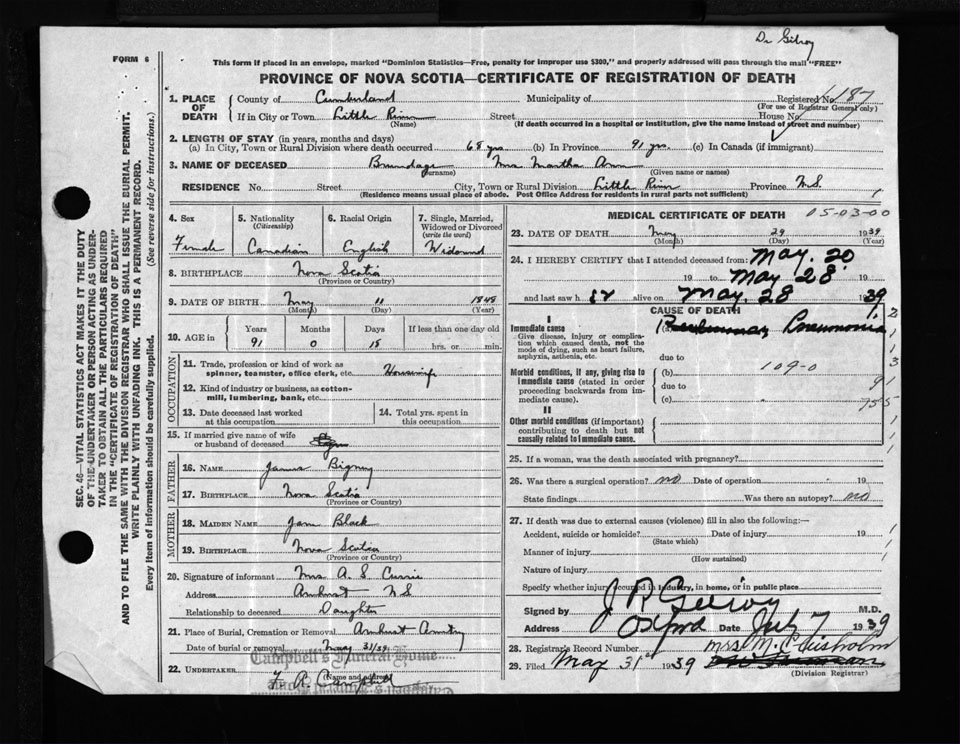 Dr Gilroy
FORM 6
This form if placed in an envelope, marked “Dominion Statistics—Free, penalty for improper use $300,” and properly addressed will pass through the mail “FREE”
PROVINCE OF NOVA SCOTIA—CERTIFICATE OF REGISTRATION OF DEATH
SEC. 46—VITAL STATISTICS ACT MAKES IT THE DUTY
OF THE UNDERTAKER OR PERSON ACTING AS UNDER-
TAKER TO OBTAIN ALL THE PARTICULARS REQUIRED
IN THE “CERTIFICATE OF REGISTRATION OF DEATH”
AND TO FILE THE SAME WITH THE DIVISION REGISTRAR WHO SHALL ISSUE THE BURIAL PERMIT.
WRITE PLAINLY WITH UNFADING INK. THIS IS A PERMANENT RECORD.
Every item of information should be carefully supplied. (See reverse side for instructions.)
1. PLACE OF DEATH
County of Cumberland Municipality of Registered No. 187
(For use of Registrar General only)
If in City or Town Little River Street House No.
(Name) (If death occurred in a hospital or institution, give the name instead of street and number)
2. LENGTH OF STAY (in years, months and days)
(a) In City, Town or Rural Division where death occurred 68 yrs. (b) In Province 91 yrs. (c) In Canada (if immigrant)
3. NAME OF DECEASED Brundage Mrs Martha Ann
(Surname) (Given name or names)
RESIDENCE No. Street City, Town or Rural Division Little River Province N.S.
(Residence means usual place of abode. Post Office Address for residents in rural parts not sufficient)
4. Sex Female
5. Nationality (Citizenship) Canadian
6. Racial Origin English
7. Single, Married, Widowed or Divorced (write the word) Widowed
8. BIRTHPLACE Nova Scotia
(Province or Country)
9. DATE OF BIRTH May 11 1848
(Month) (Day) (Year)
10. AGE in Years Months Days If less than one day old
91 0 18 hrs. or min.
OCCUPATION
11. Trade, profession or kind of work as
spinner, teamster, office clerk, etc. Housewife
12. Kind of industry or business, as cotton-
mill, lumbering, bank, etc.
13. Date deceased last worked
at this occupation
14. Total yrs. spent in
this occupation
15. If married give name of wife
or husband of deceased
FATHER
16. NAME James Bigney
17. BIRTHPLACE Nova Scotia
(Province or Country)
MOTHER
18. MAIDEN NAME Jane Black
19. BIRTHPLACE Nova Scotia
(Province or Country)
20. Signature of informant Mrs A. S. Currie
Address Amherst N S
Relationship to deceased Daughter
21. Place of Burial, Cremation or Removal Amherst
Date of burial or removal May 31/39
Campbell's Funeral Home
22. UNDERTAKER F. A. Campbell
(Name and address)
MEDICAL CERTIFICATE OF DEATH 05-03-00
23. DATE OF DEATH May 29 1939
(Month) (Day) (Year)
24. I HEREBY CERTIFY that I attended deceased from May. 20
19 to May 28 19
and last saw her alive on May. 28 1939.
CAUSE OF DEATH
I
Immediate cause
Give disease, injury or complica-
tion which caused death, not the
mode of dying, such as heart failure,
asphyxia, asthenia, etc.
(a) Pneumonia
due to
Morbid conditions, if any, giving rise to
immediate cause (stated in order
proceeding backwards from im-
mediate cause).
(b) 109-0
due to 91
(c) 755
II
Other morbid conditions (if important)
contributing to death but not
causally related to immediate cause.
25. If a woman, was the death associated with pregnancy?
26. Was there a surgical operation? no Date of operation 19
State findings Was there an autopsy? no
27. If death was due to external causes (violence) fill in also the following:—
Accident, suicide or homicide? Date of injury 19
(State which)
Manner of injury
(How sustained)
Nature of injury
Specify whether injury occurred in industry, in home, or in public place
Signed by J R Gilroy M.D.
Address Oxford Date July 7 1939
28. Registrar's Record Number Mrs M. Chisholm
29. Filed May 31 1939
(Division Registrar)